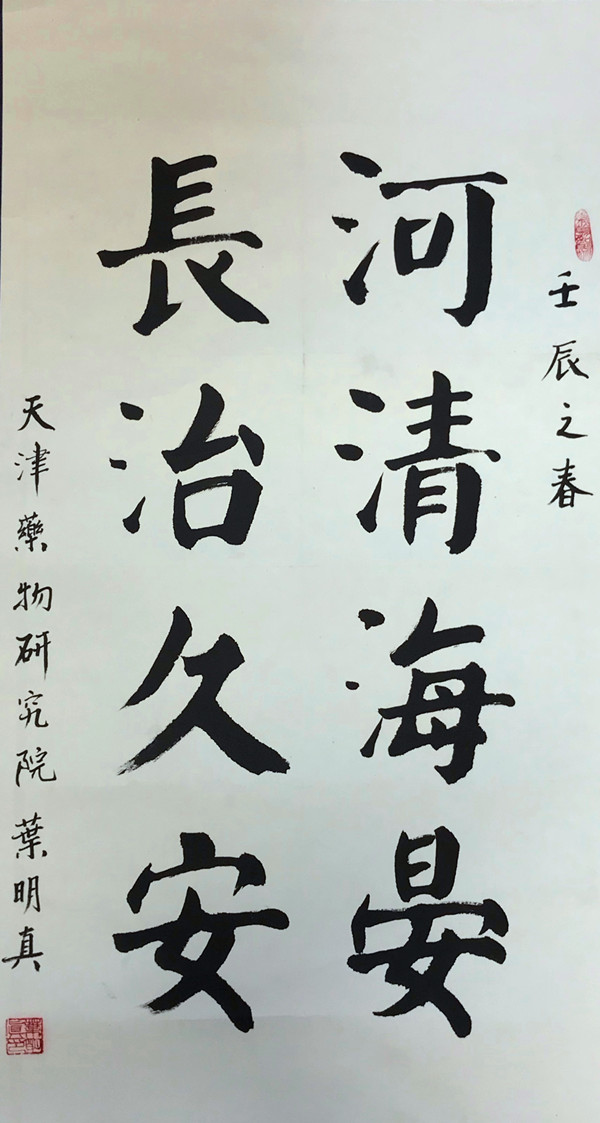 壬辰之春
河清海晏
長治久安
天津藥物研究院葉明真